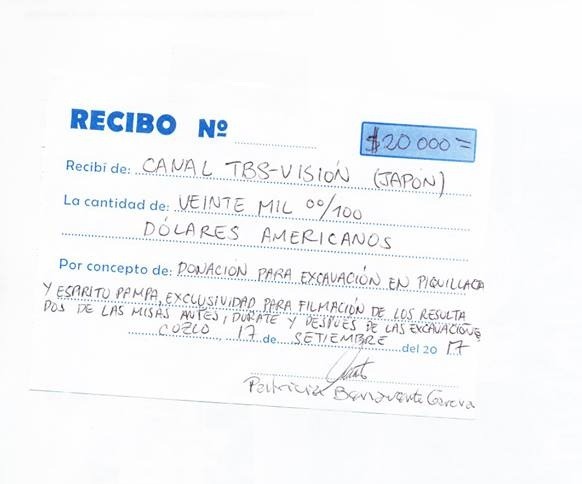 RECIBO Nº
$20 000=
Recibí de: CANAL TBS-VISIÓN (JAPÓN)
La cantidad de: VEINTE MIL 00/100
DÓLARES AMERICANOS
Por concepto de: DONACIÓN PARA EXCAVACIÓN EN PIQUILLACTA
Y ESPIRITU PAMPA, EXCLUSIVIDAD PARA FILMACIÓN DE LOS RESULTA
DOS DE LAS MISAS ANTES, DURATE Y DESPUES DE LAS EXCAVACIONES
COZCO, 17 de SETIEMBRE del 2017
Patricia Benavente Garcia